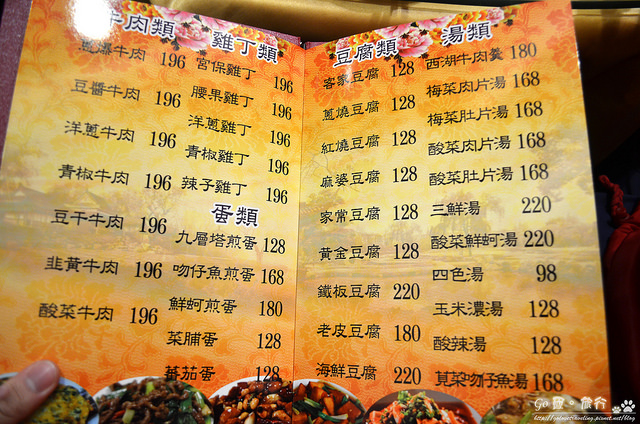 牛肉類
蔥爆牛肉 196
豆醬牛肉 196
洋蔥牛肉 196
青椒牛肉 196
豆干牛肉 196
韭黃牛肉 196
酸菜牛肉 196
雞丁類
宮保雞丁 196
腰果雞丁 196
洋蔥雞丁 196
青椒雞丁 196
辣子雞丁 196
蛋類
九層塔煎蛋 128
吻仔魚煎蛋 168
鮮蚵煎蛋 180
菜脯蛋 128
蕃茄蛋 128
豆腐類
客家豆腐 128
蔥燒豆腐 128
紅燒豆腐 128
麻婆豆腐 128
家常豆腐 128
黃金豆腐 128
鐵板豆腐 220
老皮豆腐 180
海鮮豆腐 220
湯類
西湖牛肉羹 180
梅菜肉片湯 168
梅菜肚片湯 168
酸菜肉片湯 168
酸菜肚片湯 168
三鮮湯 220
酸菜鮮蚵湯 220
四色湯 98
玉米濃湯 128
酸辣湯 128
莧菜吻仔魚湯 168